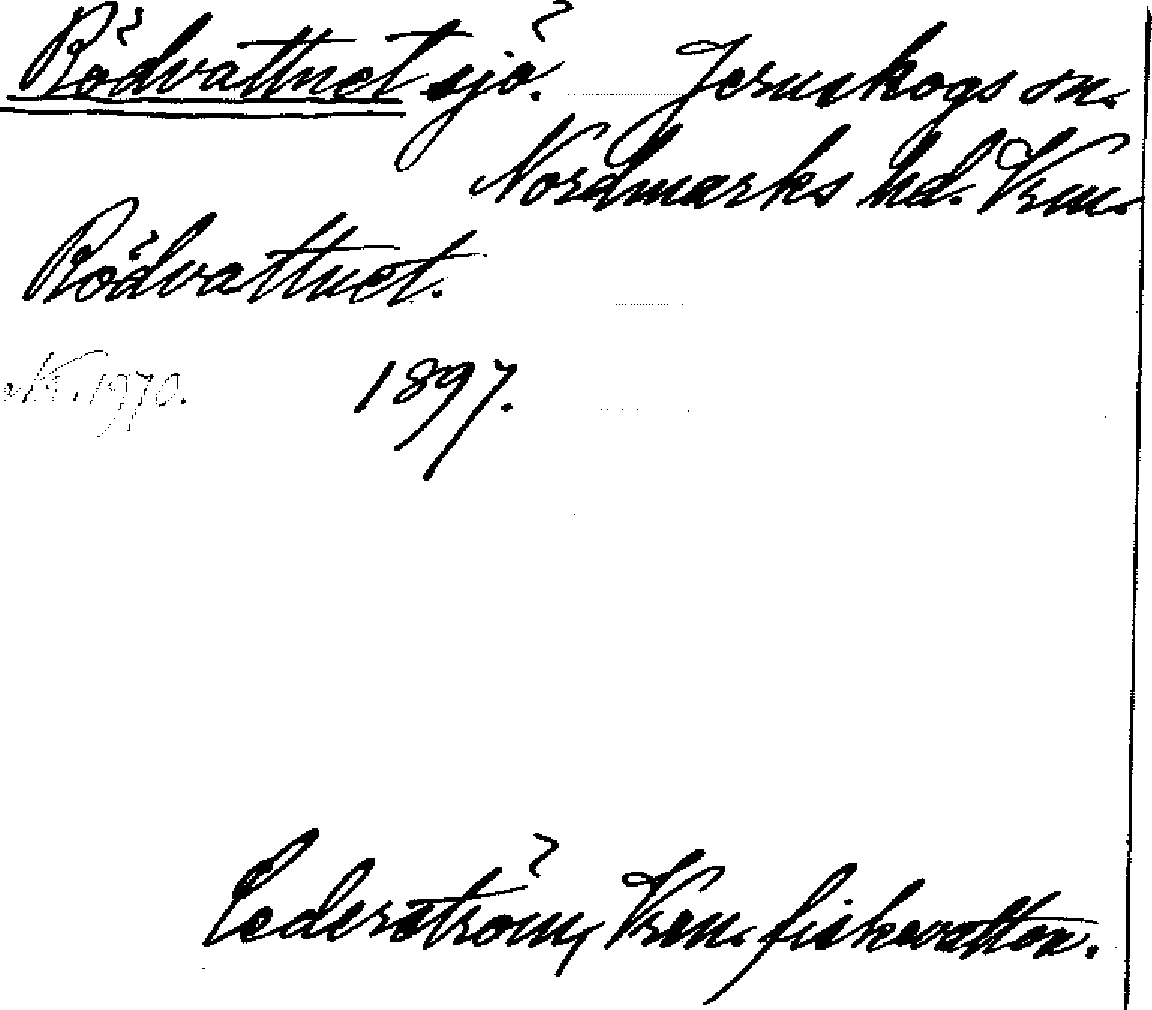 Rödvattnet sjö. Jernskogs sn.
Nordmarks hd. Vrm.
Rödvattnet.
Nr. 1970. 1897.
Cederström, Vrm. fiskevatten.